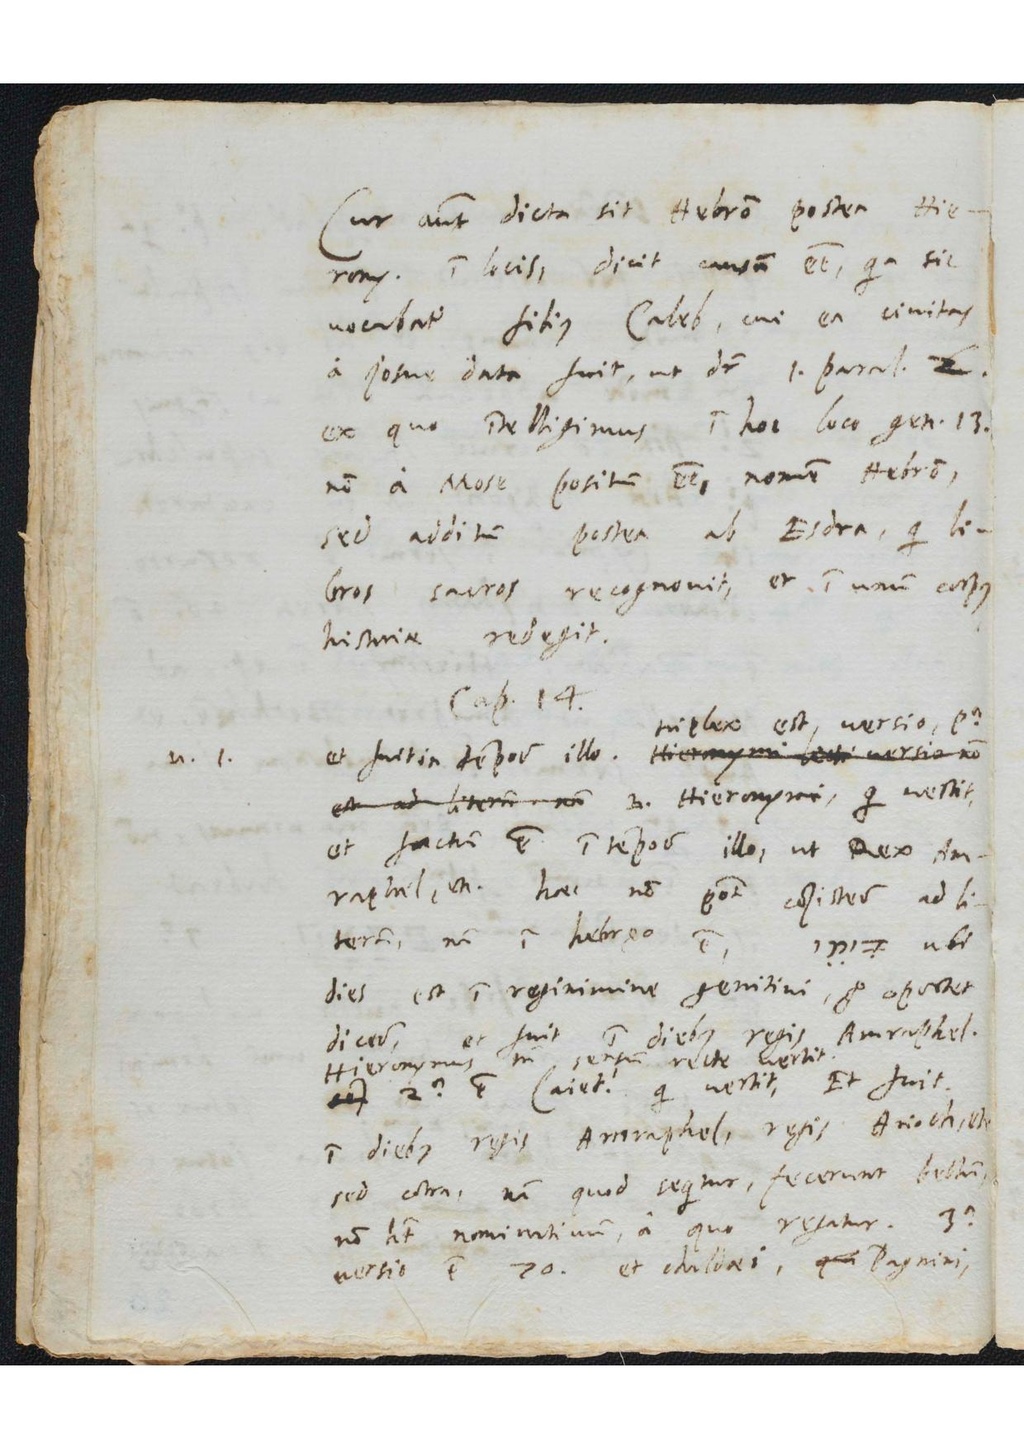 Cur aūt dicta sit Hebrō postea Hie-
rony. ī locis, dicit causā eē, qa sic
vocabat' filiꝯ Caleb, cui ea civitas
à Josue data fuit, ut dr̄ 1. paral. 2.
ex quo ītelligimus ī hoc loco gen. 13.
nō à Mose positū eē, nomē Hebrō,
sed additū postea ab Esdra, q̄ li-
bros sacros recognovit, et ī unū corpꝯ
historiæ redegit.
Cap. 14.
triplex est, versio, pª
u. 1. et fuit in tēpore illo. Hieronymi versio nō
est ad literā nā n. Hieronymi, q̄ vertit,
et factū ē ī tēpore illo, ut Rex Am-
raphel, etc. hæc nō pōt cōsistere ad li-
terā, nā ī hebræo ē, ubi
dies est ī reginimine genitivi, oportet
dicere, et fuit ī diebꝯ regis Amraphel.
Hieronymus tn̄ sensum recte vertit.
2ª ē Caiet. q̄ vertit, Et fuit
ī diebꝯ regis Amraphel, regis Arioch, etc
sed cōtra, nā quod seqitur, fecerunt bellū,
nō ht̄ nominativū, à quo regatur. 3ª
versio ē 70. et chaldæi, qui Pagnini,